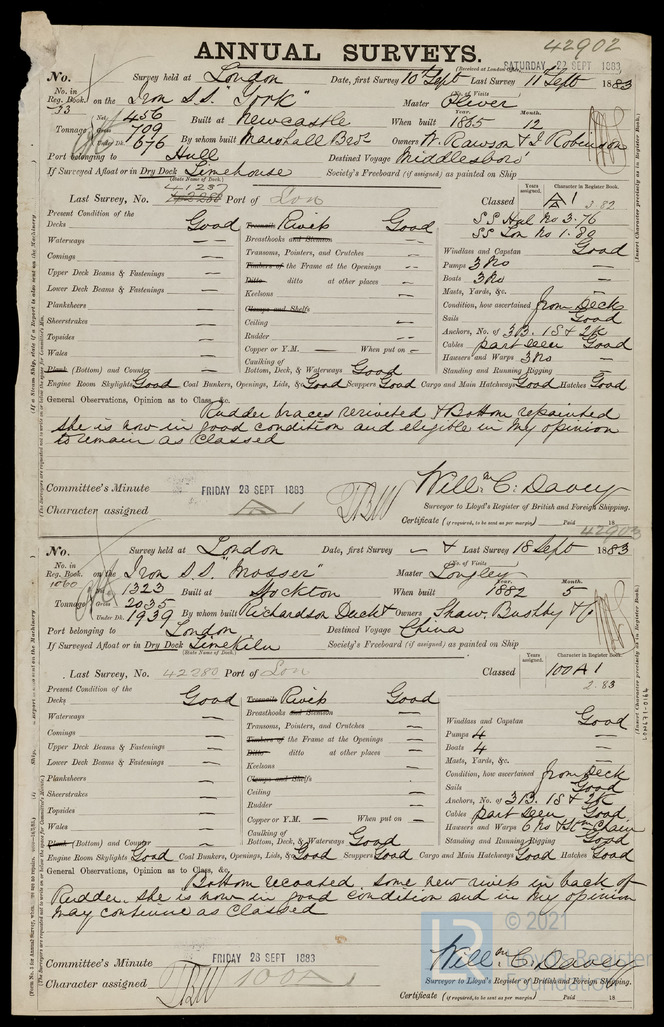 42902
ANNUAL SURVEYS.
(Received at London Office, SATURDAY 22 SEPT 1883
No. Survey held at London Date, first Survey 10 Sept Last Survey 11 Sept 1883
No. in Reg. Book. (No. of Visits )
33 on the Iron S.S. "York" Master Oliver
Tonnage Net 456 Built at Newcastle When built Year. 1865 Month. 12
Gross 709
Under Dk. 676 By whom built Marshall Bros Owners W. Rawson & J. Robinson
Port belonging to Hull Destined Voyage Middlesboro'
If Surveyed Afloat or in Dry Dock Limehouse Society's Freeboard (if assigned) as painted on Ship
(State Name of Dock.)
41287
Last Survey, No. 42280 Port of Lon Classed Years assigned. Character in Register Book.
A1 3.82
SS Hul No 3.76
SS Lon No 1.80
Present Condition of the
Decks Good Treenails Rivets Good
Waterways — Breasthooks and Stemson —
Comings — Transoms, Pointers, and Crutches —
Upper Deck Beams & Fastenings — Timbers of the Frame at the Openings —
Lower Deck Beams & Fastenings — Ditto ditto at other places —
Planksheers — Keelsons —
Sheerstrakes — Clamps and Shelfs
Topsides — Ceiling —
Wales — Rudder —
Plank (Bottom) and Counter — Copper or Y.M. — When put on —
Caulking of Bottom, Deck, & Waterways Good
Windlass and Capstan Good
Pumps 3 No —
Boats 3 No —
Masts, Yards, &c. —
Condition, how ascertained from Deck
Sails Good
Anchors, No. of 3B. 1S & 2K
Cables part seen Good
Hawsers and Warps 3 No —
Standing and Running Rigging —
Engine Room Skylights Good Coal Bunkers, Openings, Lids, &c Good Scuppers Good Cargo and Main Hatchways Good Hatches Good
General Observations, Opinion as to Class, &c.
Rudder braces reriveted & Bottom repainted
she is now in good condition and eligible in my opinion
to remain as Classed
Committee's Minute FRIDAY 28 SEPT 1883
Character assigned A1
Willm C: Davey
Surveyor to Lloyd's Register of British and Foreign Shipping.
Certificate (if required, to be sent as per margin) Paid 18
42903
No. Survey held at London Date, first Survey — & Last Survey 18 Sept 1883
No. in Reg. Book. (No. of Visits )
on the Iron S.S. "Mosser" Master Longley
Tonnage Net 1323 Built at Stockton When built Year. 1882 Month. 5
Gross 2035
Under Dk. 1939 By whom built Richardson Duck & Owners Shaw, Bushby & Co
Port belonging to London Destined Voyage China
If Surveyed Afloat or in Dry Dock Limekiln Society's Freeboard (if assigned) as painted on Ship
(State Name of Dock.)
Last Survey, No. 42280 Port of Lon Classed Years assigned. Character in Register Book.
100A1
2.83
Present Condition of the
Decks Good Treenails Rivets Good
Waterways — Breasthooks and Stemson —
Comings — Transoms, Pointers, and Crutches —
Upper Deck Beams & Fastenings — Timbers of the Frame at the Openings —
Lower Deck Beams & Fastenings — Ditto ditto at other places —
Planksheers — Keelsons —
Sheerstrakes — Clamps and Shelfs
Topsides — Ceiling —
Wales — Rudder —
Plank (Bottom) and Counter — Copper or Y.M. — When put on —
Caulking of Bottom, Deck, & Waterways Good
Windlass and Capstan Good
Pumps 4 —
Boats 4 —
Masts, Yards, &c. —
Condition, how ascertained from Deck
Sails Good
Anchors, No. of 3B. 1S & 2K
Cables part seen Good
Hawsers and Warps 6 No & Stm Chain
Standing and Running Rigging Good
Engine Room Skylights Good Coal Bunkers, Openings, Lids, &c Good Scuppers Good Cargo and Main Hatchways Good Hatches Good
General Observations, Opinion as to Class, &c.
Bottom recoated. some new rivets in back of
Rudder. she is now in good condition and in my opinion
may continue as Classed
Committee's Minute FRIDAY 28 SEPT 1883
Character assigned 100A1
Willm C. Davey
Surveyor to Lloyd's Register of British and Foreign Shipping.
Certificate (if required, to be sent as per margin) Paid 18
(Insert Character precisely as in Register Book.)
LON671-0166
© 2021
Lloyd's Register
Foundation